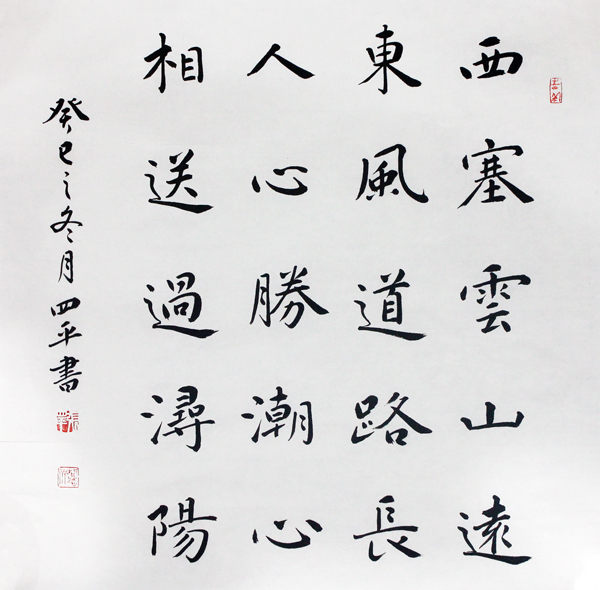 西塞雲山遠
東風道路長
人心勝潮心
相送過潯陽
癸巳之冬月四平書